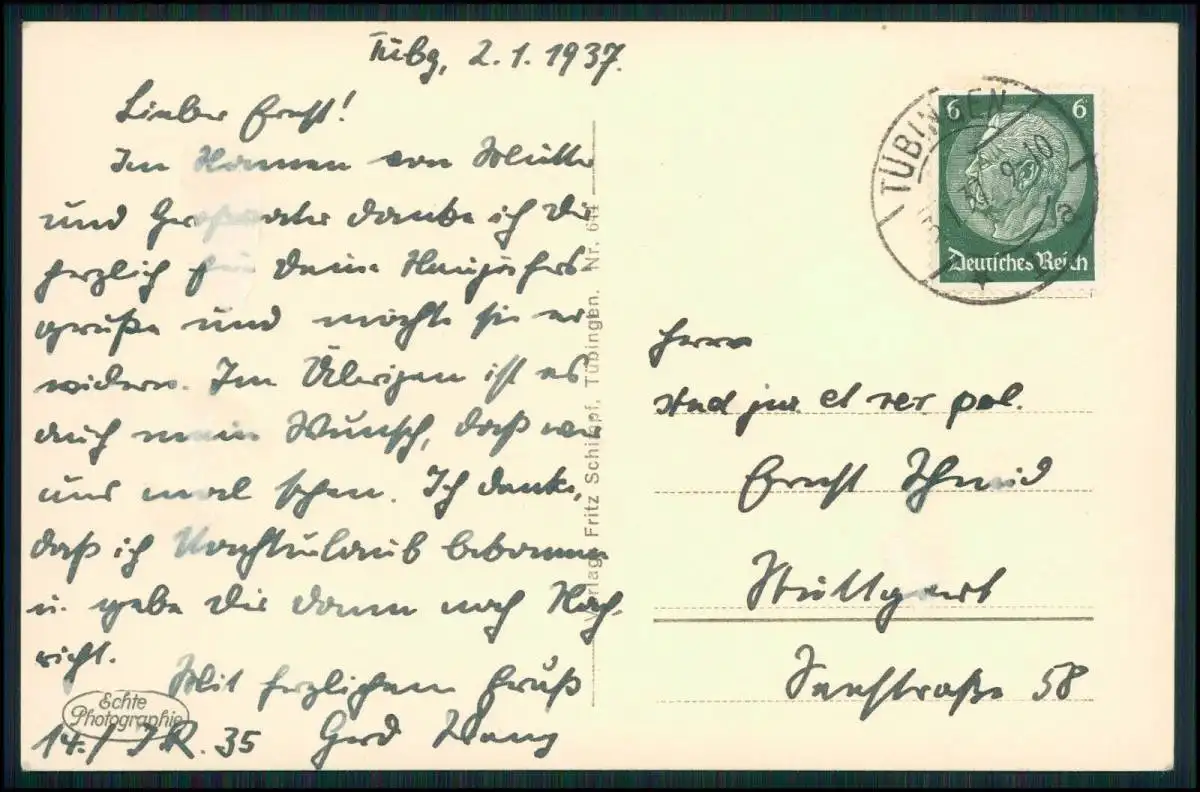 Tübg, 2.1.1937.
Lieber Ernst!
Im Namen von Mutter
und Großvater danke ich Dir
herzlich für Deine Neujahrs
grüße und möchte sie er
widern. Im Übrigen ist es
auch mein Wunsch, daß wir
uns mal sehen. Ich denke,
daß ich Nachturlaub bekomme
u. gebe Dir dann noch Nach-
richt.
Mit herzlichem Gruß
Gerd
14./I.R. 35
Echte
Photographie
Verlag: Fritz Schimpf, Tübingen. Nr. 644
TÜBINGEN
37.9-10
1a
6 6
Deutsches Reich
Herrn
stud jur. et rer pol.
Ernst Schmid
Stuttgart
Senefstraße 58